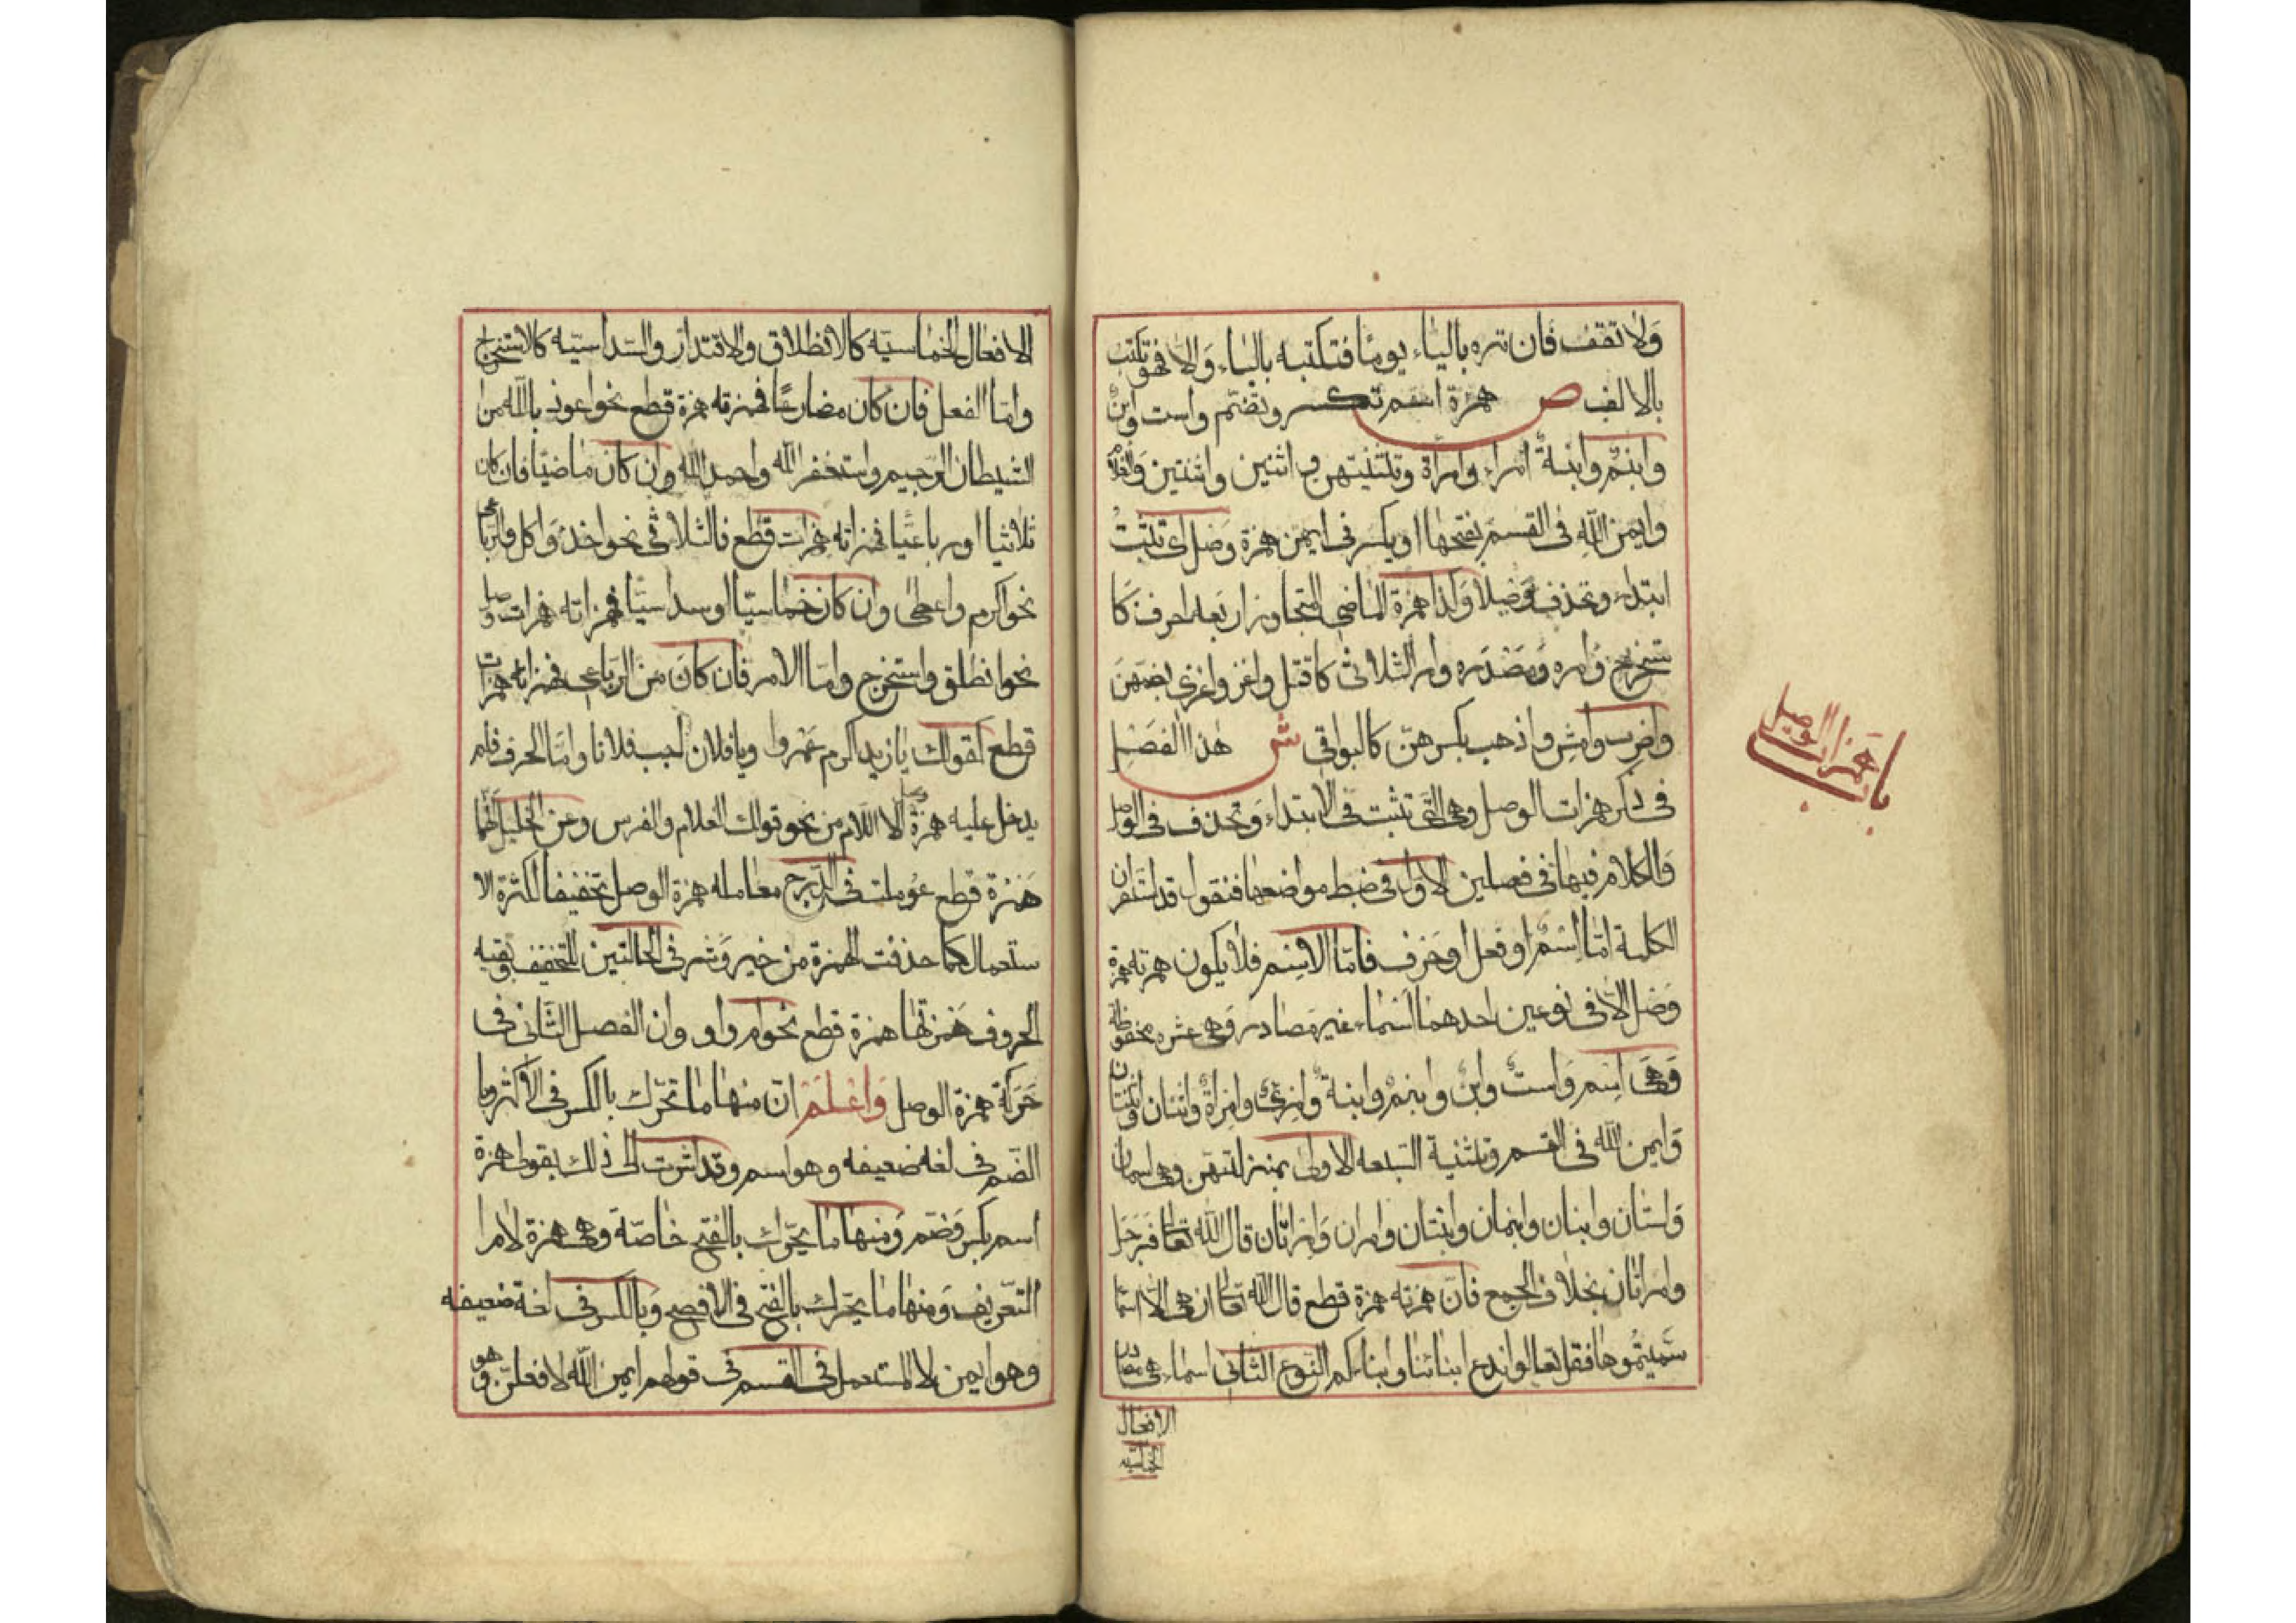 ولا تقف فان تره بالياء يوما فتكتبه بالياء والا فهو تكتب
بالالف ص همزة اسم تكسر وتضم واست وابن
وابنم وابنة امراء وامراة وتثنيتهن واثنين واثنتين والغلام
وايمن الله فى القسم بفتحها او بكسر فى ايمن همزة وصل اى تثبت
ابتداء وتحذف وصلا وكذا همزة الماضى المتجاوز اربعة احرف كا
ستخرج وامره ومصدره وامر الثلاثى كاقتل واغز واغزى بضمهن
واضرب وامش واذهب بكسرهن كالبواقى ش هذا الفصل
فى ذكر همزات الوصل وهى التى تثبت فى الابتداء وتحذف فى الوصل
والكلام فيها فى فصلين الاول فى ضبط مواضعها فنقول قد استقر ان
الكلمة اما اسم او فعل او حرف فاما الاسم فلا يكون همزته همزة
وصل الا فى نوعين احدهما اسماء غير مصادر وهى عشرة محفوظة
وهى اسم واست وابن وابنم وابنة وامرئ وامرأة واثنان واثنتان
وايمن الله فى القسم وتثنية السبعه الاولى بمنزلتهن وهى اسمان
واستان وابنان وابنمان وابنتان وامران وامراتان قال الله تعالى فرجل
وامراتان بخلاف الجمع فان همزته همزة قطع قال الله تعالى ان هى الا اسما
سميتموها فقل تعالوا ندع ابنائنا وابناءكم النوع الثانى اسماء هى مصادر
الافعال
الخماسيه
باب همزات الوصل
الافعال الخماسيّه كالانطلاق والاقتدار والسّداسيّه كالاستخراج
وامّا الفعل فان كان مضارعًا فهمزته همزة قطع نحو اعوذ بالله من
الشيطان الرجيم واستغفر الله واحمد الله وان كان ماضيًا فان كان
ثلاثيا او رباعيًا فهمزاته همزات قطع فالثلاثى نحو اخذ واكل والرباعى
نحو اكرم واعطى وان كان خماسيّا او سداسيّا فهمزاته همزات وصل
نحو انطلق واستخرج وامّا الامر فان كان من الرباعى فهمزاته همزات
قطع كقولك يا زيد اكرم عمروا ويا فلان اجب فلانا وامّا الحرف فلم
يدخل عليه همزة وصل الا اللام من نحو قولك الغلام والفرس وعن الخليل انها
همزة قطع عوملت فى الدرج معاملة همزة الوصل تخفيفا لكثرة الا
ستعمال كما حذفت الهمزة من خير وشر فى الحالتين للتخفيف وبقيه
الحروف همزتها همزة قطع نحو ام واو وان الفصل الثانى فى
حركة همزة الوصل واعلم انّ منها ما تحرّك بالكسر فى الاكثر وبا
الضم فى لغه ضعيفه وهو اسم وقد اشرت الى ذلك بقولى همزة
اسم بكسر وضم ومنها ما يحرّك بالفتح خاصّة وهى همزة لام ا
التعريف ومنها ما يحرّك بالفتح فى الافصح وبالكسر فى لغة ضعيفه
وهو ايمن لا المستعمل فى القسم فى قولهم ايمن الله لافعلنّ وهو